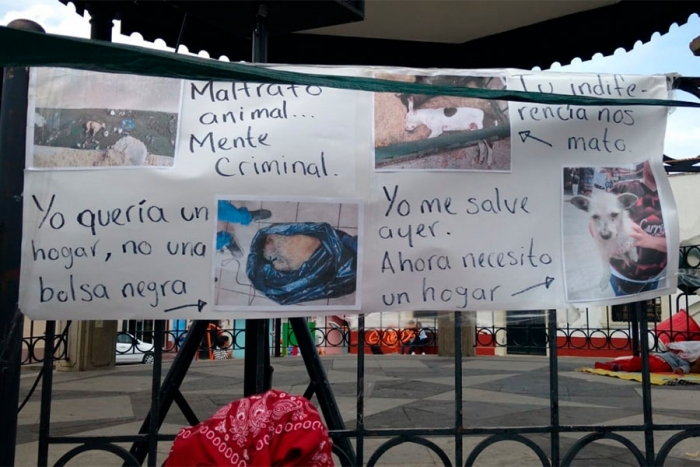 Maltrato
animal...
Mente
Criminal.
Tu indife-
rencia nos
mato.
Yo quería un
hogar, no una
bolsa negra
Yo me salve
ayer.
Ahora necesito
un hogar